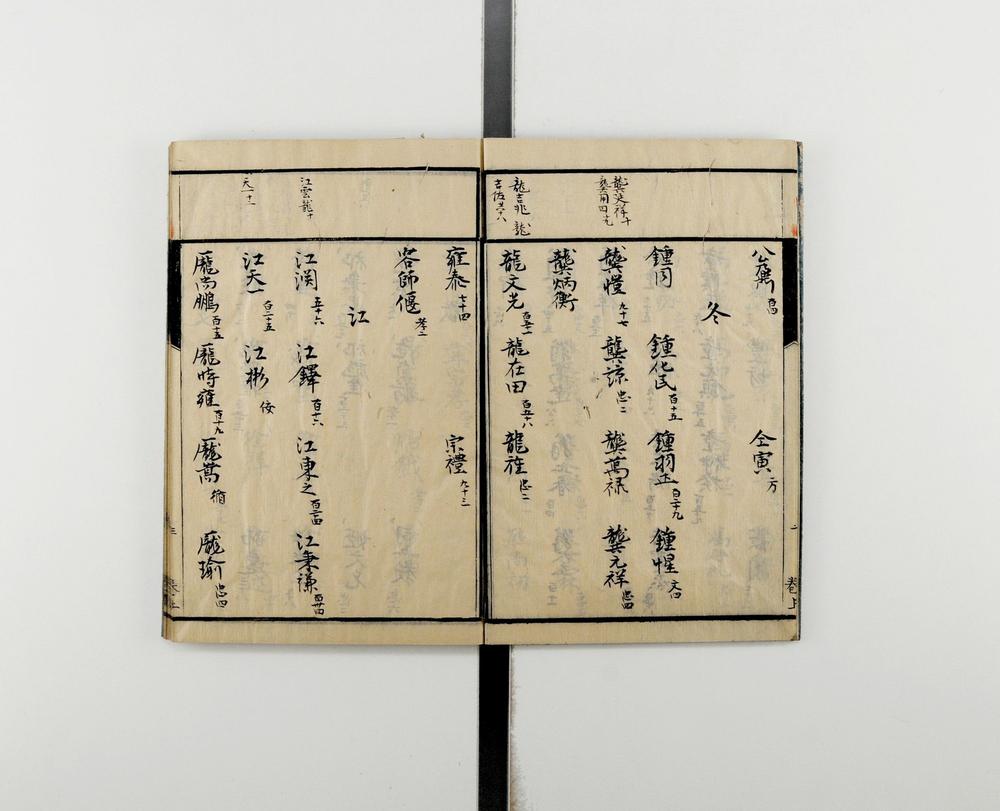 龔用四十九
龍吉兆 龍
吉佐卅八
仝寅 方
冬
鍾同 鍾化民 百十五 鍾羽正 百二十九 鍾惺 文四
龔愷 九十七 龔諒 忠二 龔萬禄 龔元祥 忠四
龔炳衡
龍文光 百五十一 龍在田 百五十八 龍旌 忠二
雍泰 七十四 宗禮 九十三
容師偃 孝二
江
江淵 五十六 江鐸 百十六 江東之 百二四 江秉謙 百卌四
江天一 百二十五 江彬 佞
龐尚鵬 百十五 龐時雍 百十九 龐嵩 循 龐瑜 忠四
江雲龍十
天一十一
卷上
三